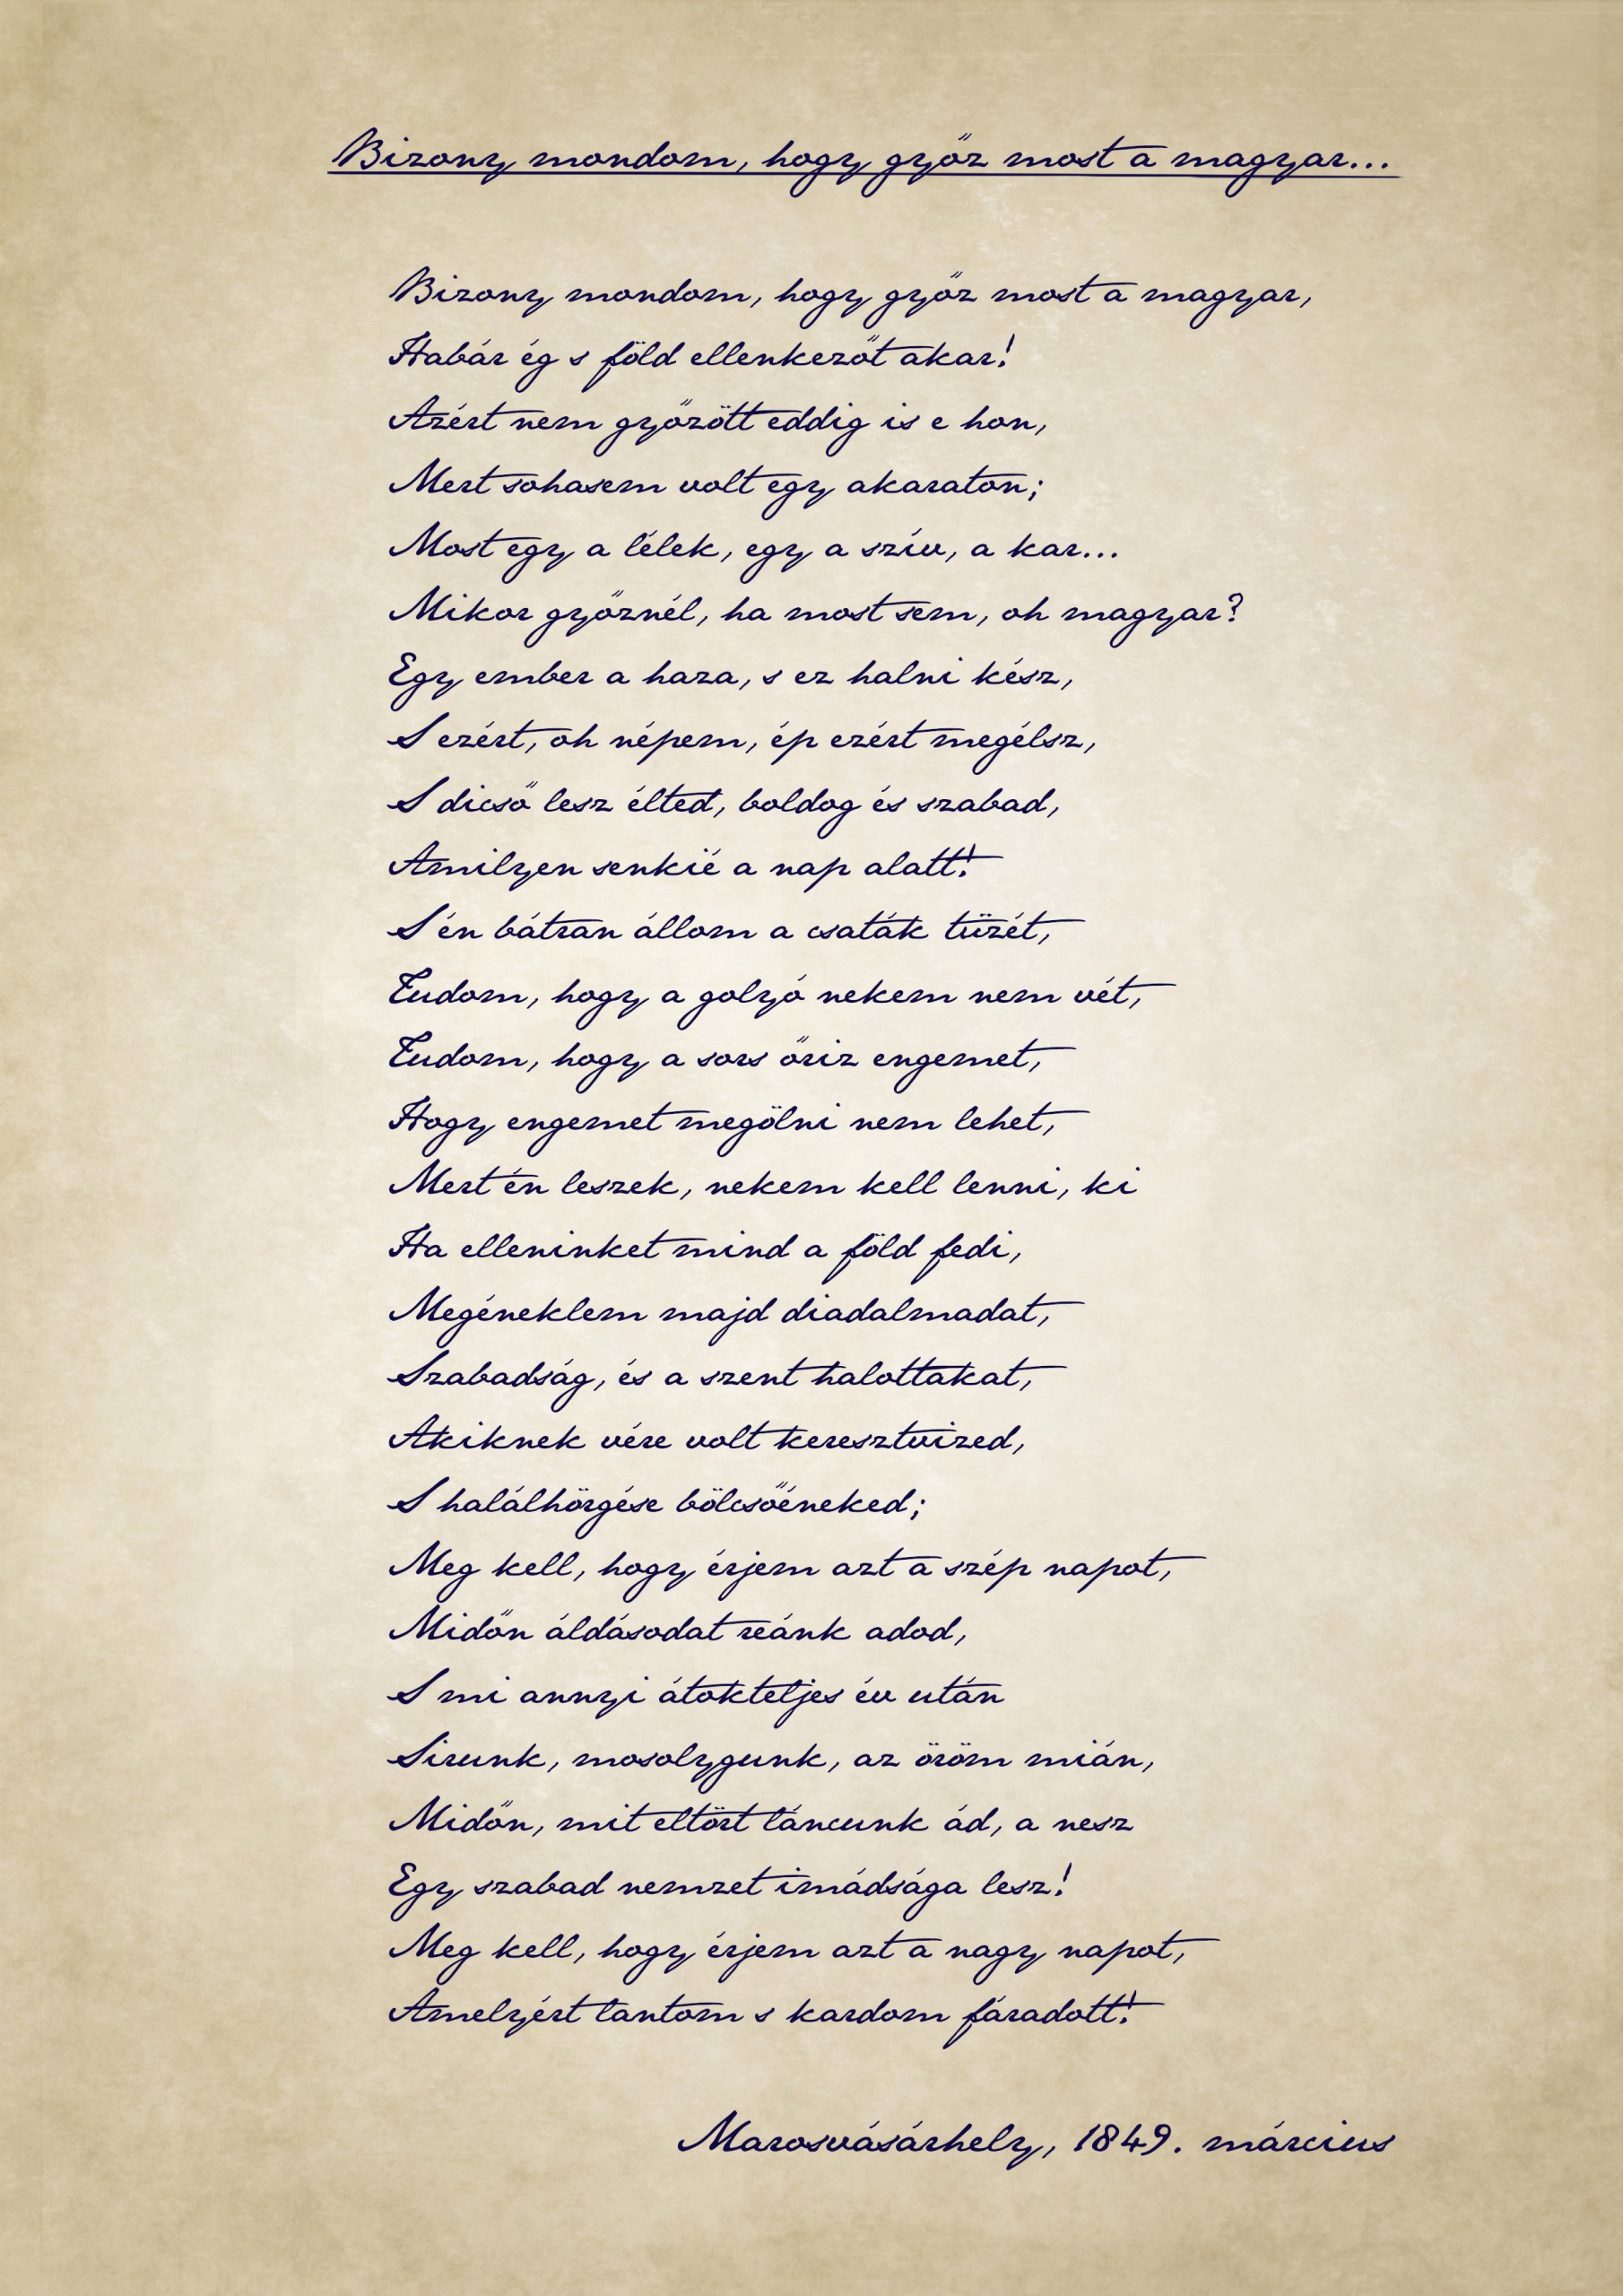 Bizony mondom, hogy győz most a magyar...
Bizony mondom, hogy győz most a magyar,
Habár ég s föld ellenkezőt akar!
Azért nem győzött eddig is e hon,
Mert sohasem volt egy akaraton;
Most egy a lélek, egy a szív, a kar...
Mikor győznél, ha most sem, oh magyar?
Egy ember a haza, s ez halni kész,
S ezért, oh népem, ép ezért megélsz,
S dicső lesz élted, boldog és szabad,
Amilyen senkié a nap alatt!
S én bátran állom a csaták tüzét,
Tudom, hogy a golyó nekem nem vét,
Tudom, hogy a sors őriz engemet,
Hogy engemet megölni nem lehet,
Mert én leszek, nekem kell lenni, ki
Ha elleninket mind a föld fedi,
Megéneklem majd diadalmadat,
Szabadság, és a szent halottakat,
Akiknek vére volt keresztvized,
S halálhörgése bölcsőéneked;
Meg kell, hogy érjem azt a szép napot,
Midőn áldásodat reánk adod,
S mi annyi átokteljes év után
Sirunk, mosolygunk, az öröm mián,
Midőn, mit eltört láncunk ád, a nesz
Egy szabad nemzet imádsága lesz!
Meg kell, hogy érjem azt a nagy napot,
Amelyért lantom s kardom fáradott!
Marosvásárhely, 1849. március